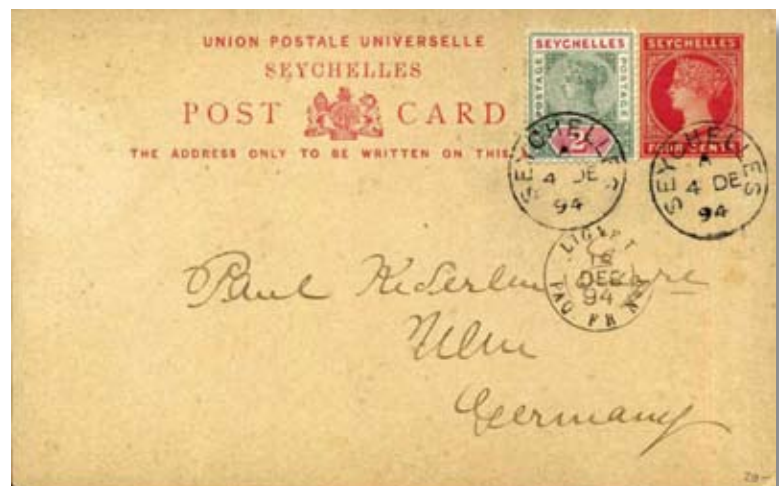 UNION POSTALE UNIVERSELLE
SEYCHELLES
POST CARD
THE ADDRESS ONLY TO BE WRITTEN ON THIS
SEYCHELLES
POSTAGE
POSTAGE
2
SEYCHELLES
FOUR CENTS
SEYCHELLES
A
4 DE
94
SEYCHELLES
A
4 DE
94
LIGNE T
DEC
94
PAQ FR No
Paul
Ulm
Germany